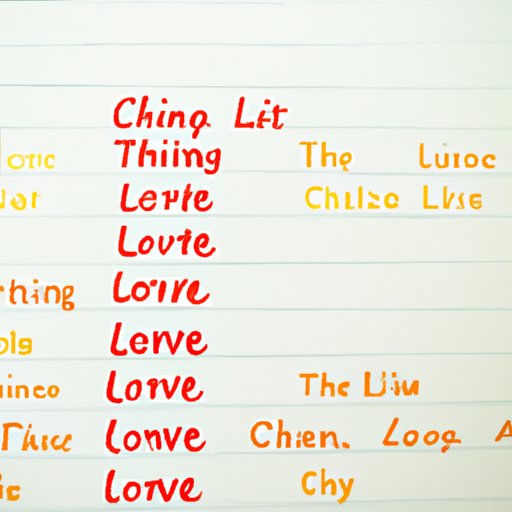 Ching Lit
otic Thiing The Luroc
Lerte Chlizo Lkse
Lovte
rhing Lorre
ols Lerve
uineo Lorve The Liiu
Thicc Lonve Chien. Loog A
ic Lorve Chy